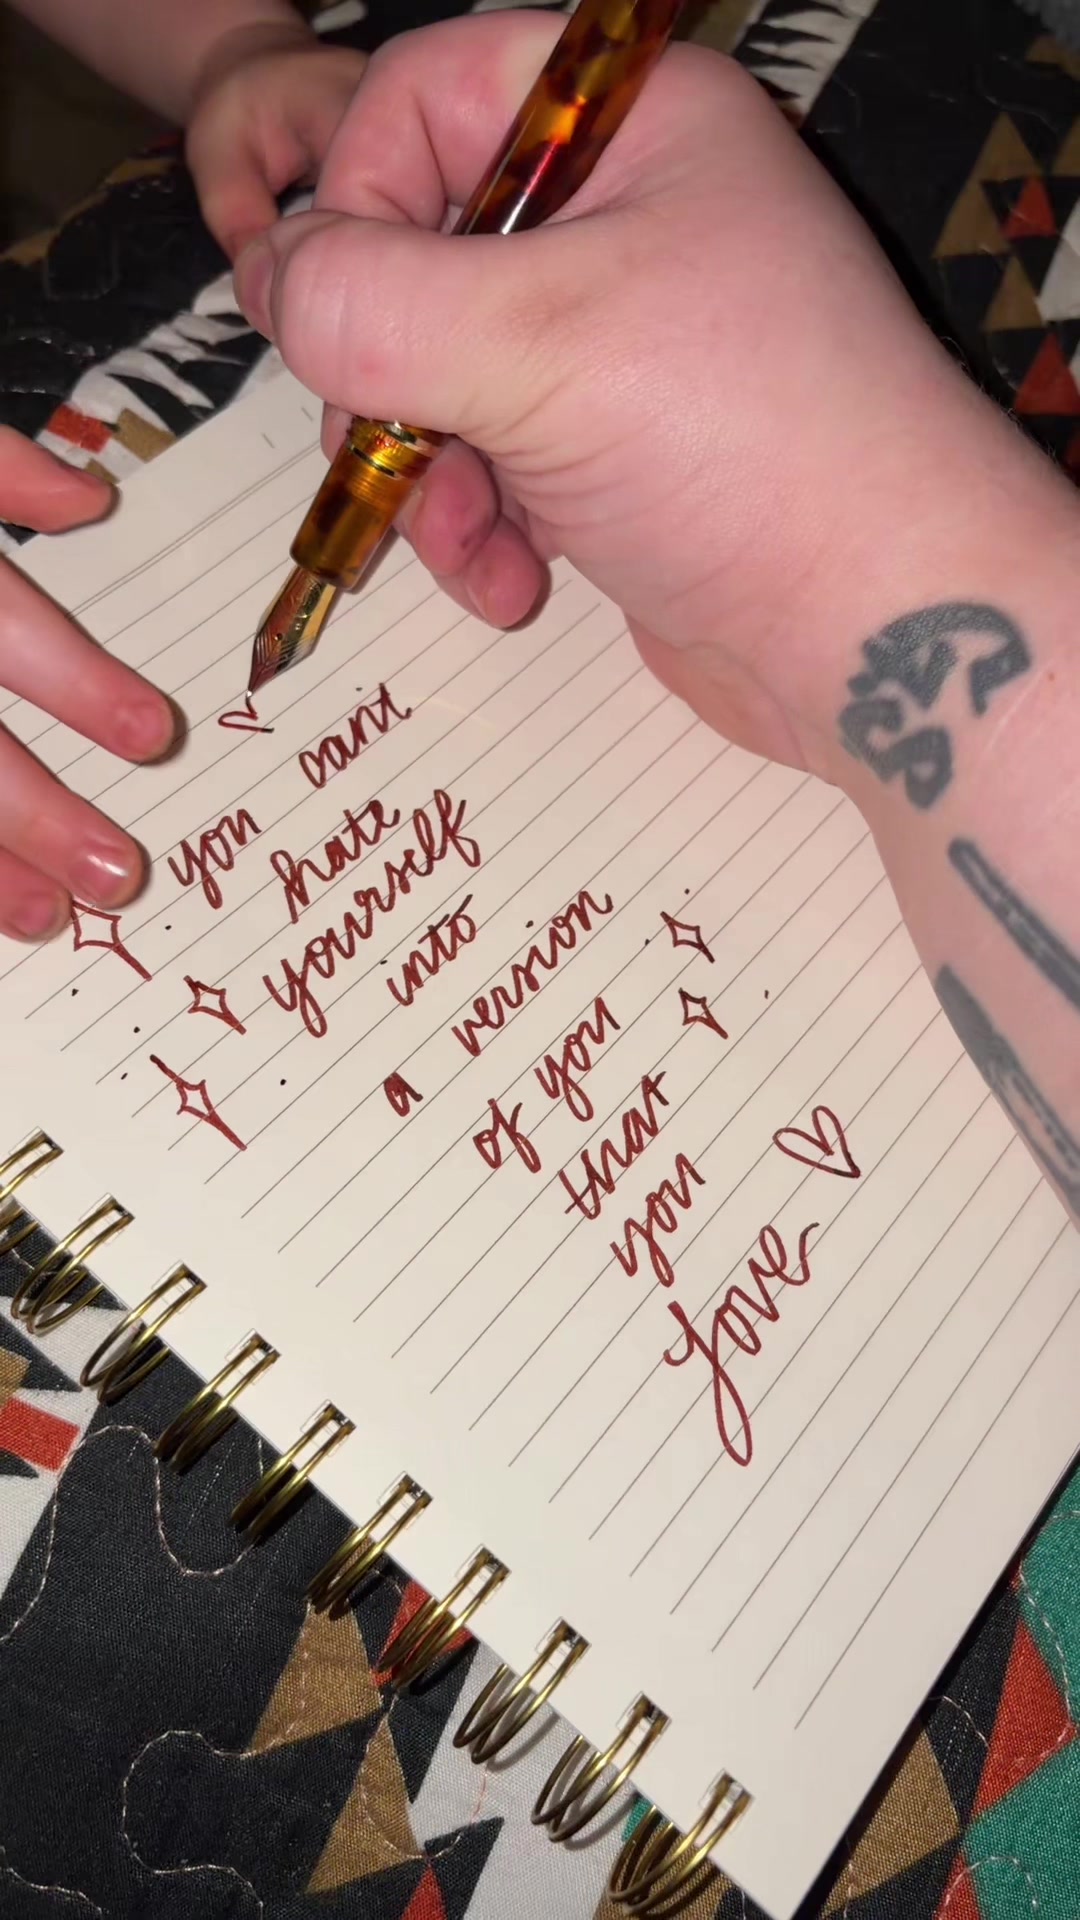 you cant
hate
yourself
into
a version
of you
that
you
love